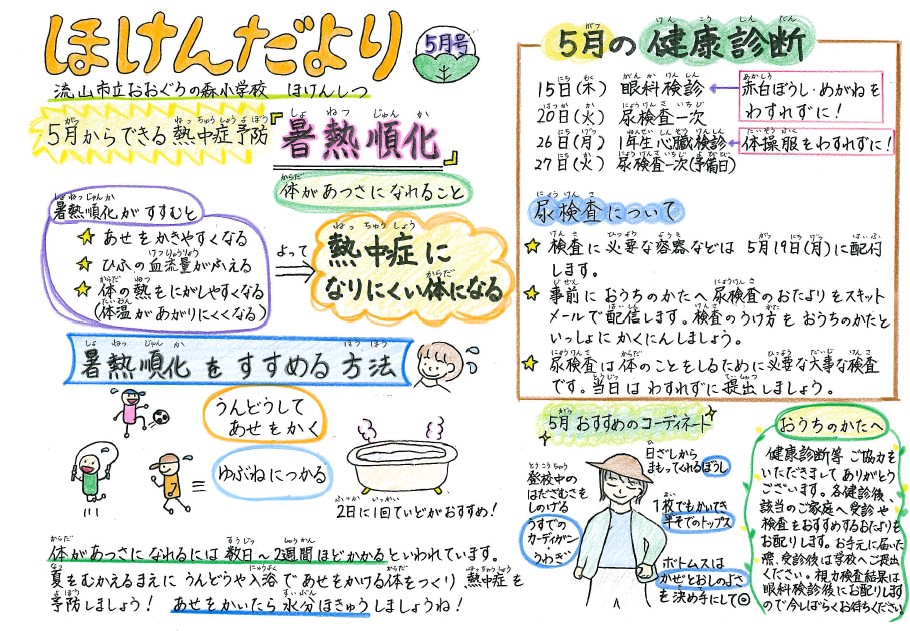 ほけんだより
5月号
流山市立おおぐろの森小学校 ほけんしつ
5月からできる熱中症予防
暑熱順化
体があつさになれること
暑熱順化がすすむと
★ あせをかきやすくなる
★ ひふの血流量がふえる
★ 体の熱をにがしやすくなる
(体温があがりにくくなる)
よって
熱中症に
なりにくい体になる
暑熱順化をすすめる方法
うんどうして
あせをかく
ゆぶねにつかる
2日に1回ていどがおすすめ!
体があつさになれるには 数日~2週間ほどかかるといわれています。
夏をむかえるまえに うんどうや入浴で あせをかける体をつくり 熱中症を
予防しましょう! あせをかいたら 水分ほきゅうしましょうね!
5月の健康診断
15日(木) 眼科検診
赤白ぼうし・めがねを
わすれずに!
20日(火) 尿検査一次
26日(月) 1年生心臓検診
体操服をわすれずに!
27日(火) 尿検査一次(予備日)
尿検査について
★ 検査に必要な容器などは 5月19日(月)に配付
します。
★ 事前に おうちのかたへ 尿検査のおたよりをスキット
メールで配信します。検査のうけ方を おうちのかたと
いっしょに かくにんしましょう。
★ 尿検査は 体のことをしるために必要な大事な検査
です。当日は わすれずに 提出しましょう。
5月おすすめのコーディネート
日ざしから
まもってくれるぼうし
登校中の
はだざむさを
しのげる
うすでの
カーディガン
うわぎ
1枚でもかいてき
半そでのトップス
ボトムスは
かぜとおしのよさ
を決め手にして◎
おうちのかたへ
健康診断等 ご協力を
いただきまして ありがとう
ございます。各健診後、
該当のご家庭へ受診や
検査をおすすめするおたよりを
お配りします。お手元に届いた
際、受診後は学校へご提出
ください。視力検査結果は
眼科検診後にお配りします
ので今しばらくお待ちください